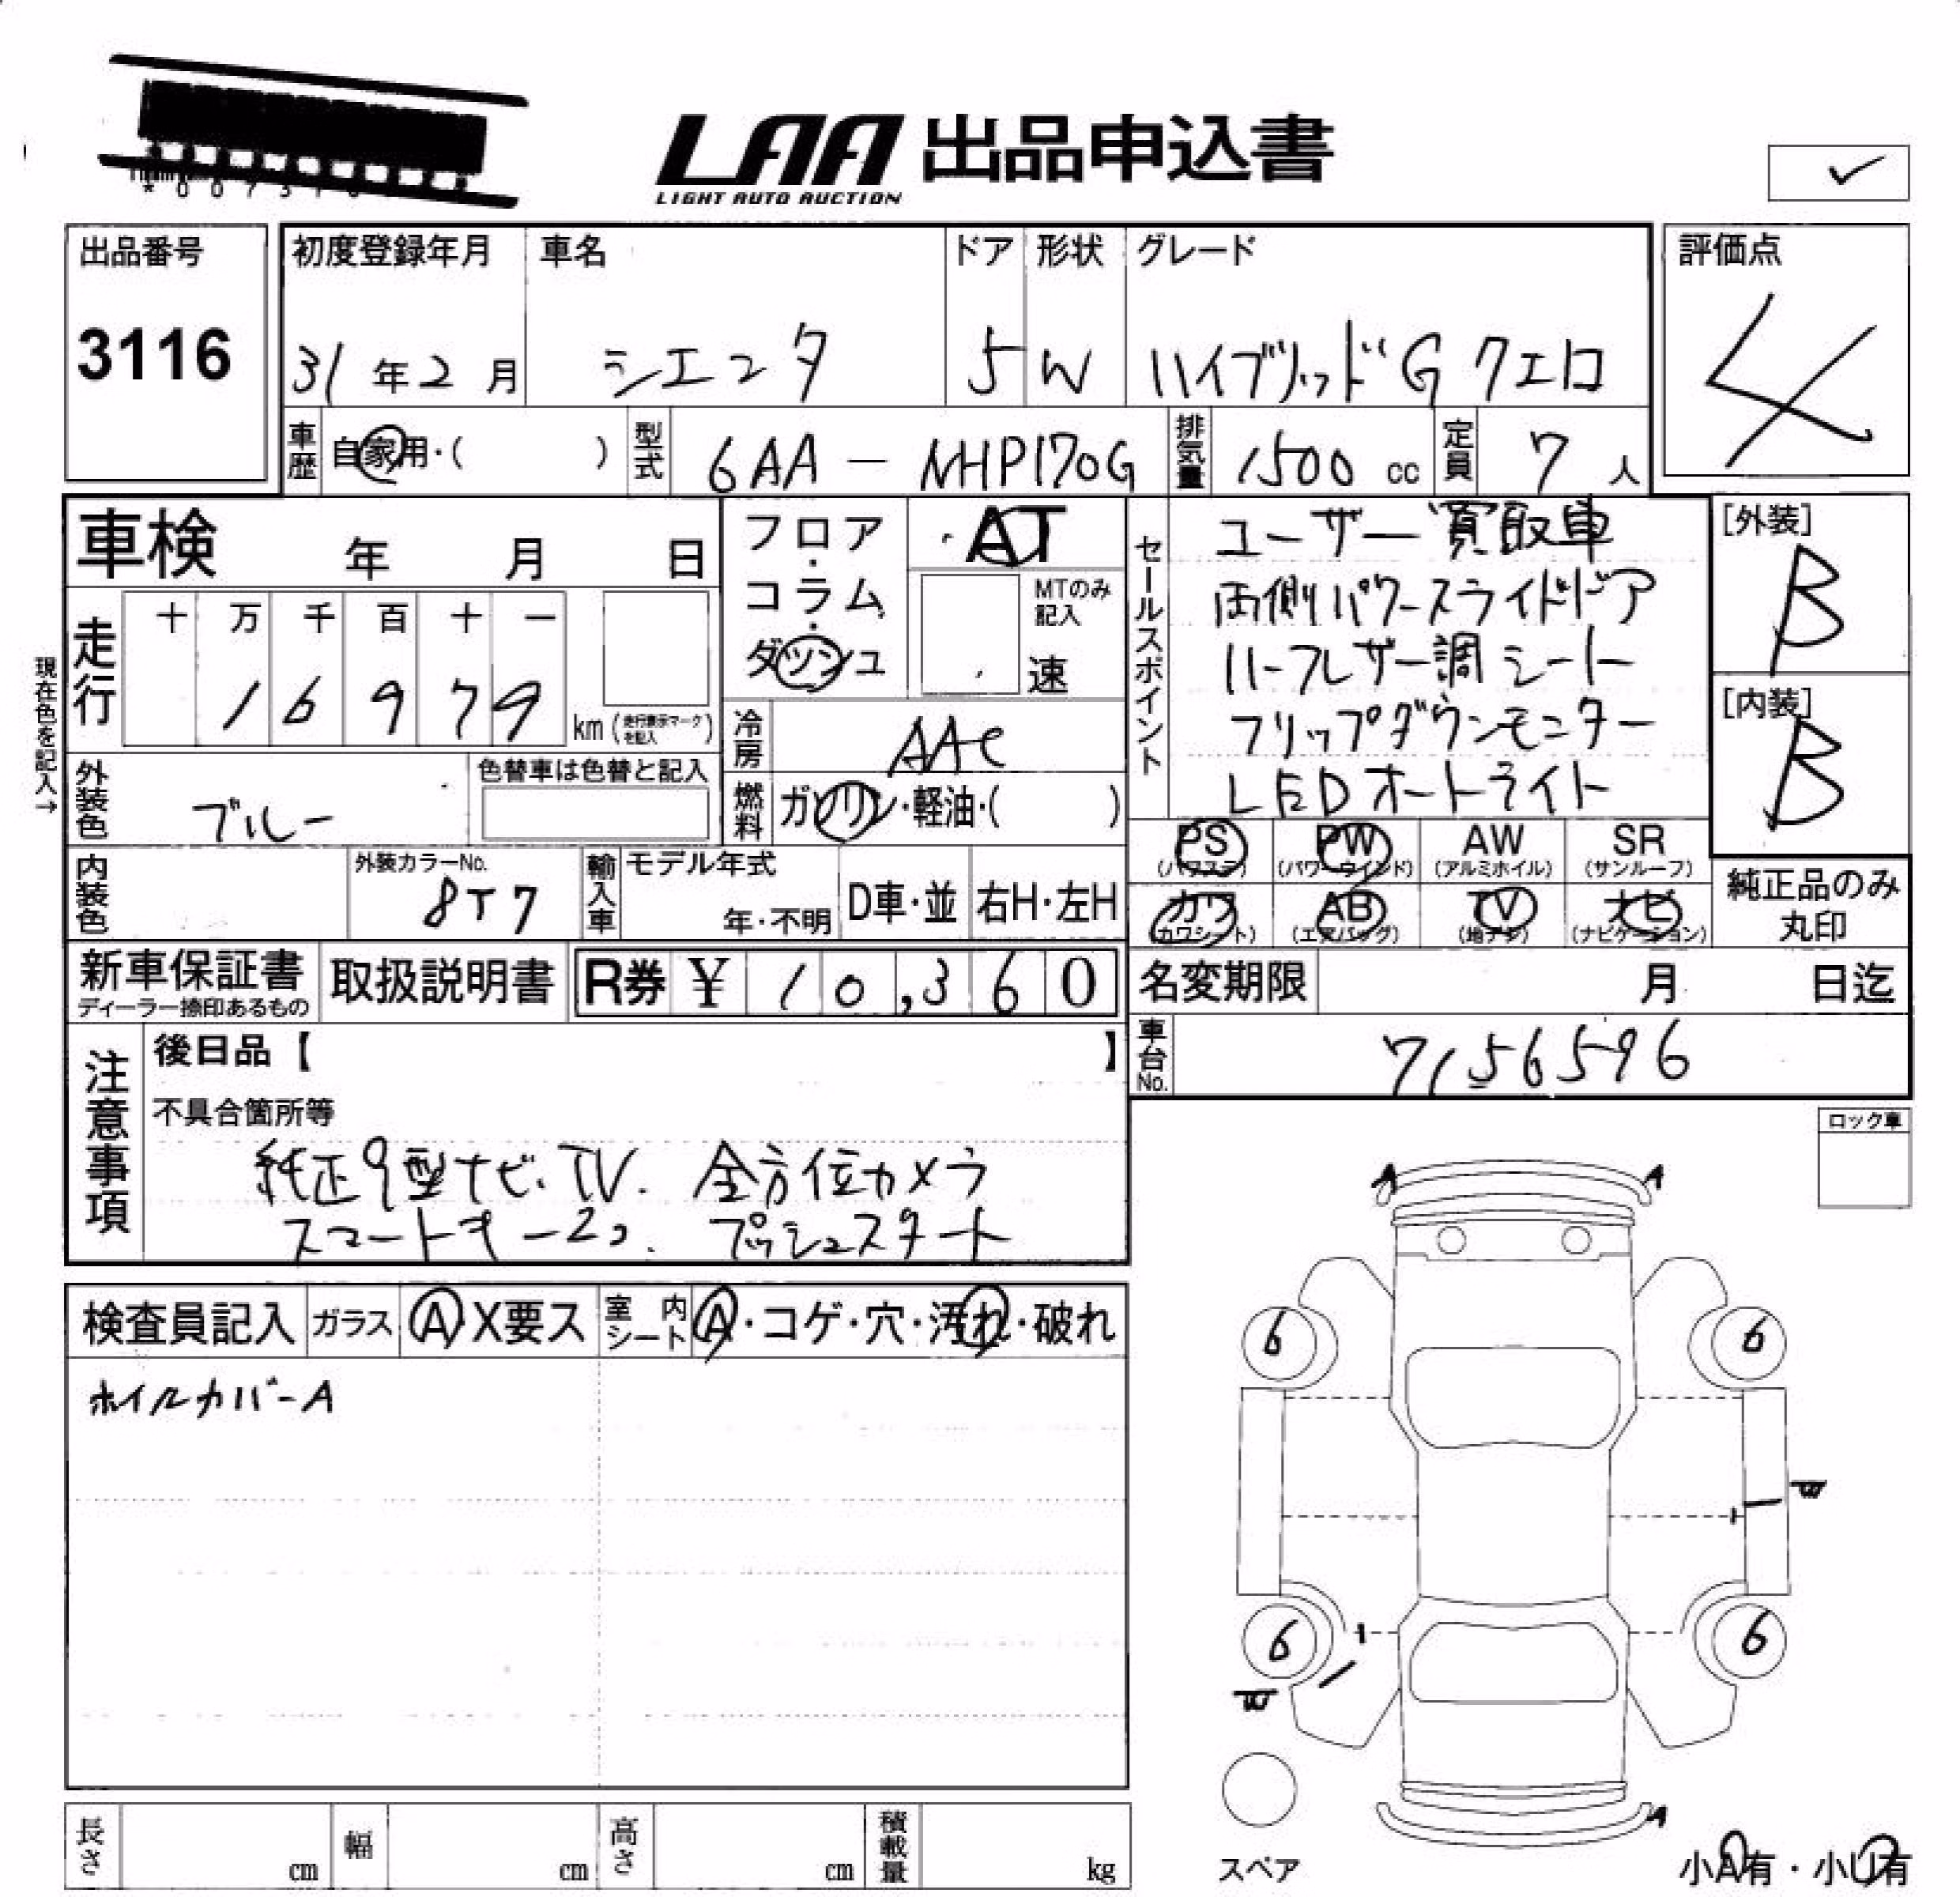 LAA 出品申込書
LIGHT AUTO AUCTION
出品番号
3116
初度登録年月 車名 ドア 形状 グレード
31年2月 シエンタ 5 W ハイブリッドG クエロ
評価点
4
車歴 自家用・( ) 型式 6AA - NHP170G 排気量 1500cc 定員 7人
車検 年 月 日
フロア・コラム・ダッシュ
AT
MTのみ記入
速
セールスポイント
ユーザー買取車
両側パワースライドドア
ハーフレザー調シート
フリップダウンモニター
LEDオートライト
[外装]
B
[内装]
B
現在色を記入→
走行 十 万 千 百 十 一
1 6 9 7 9 km (走行表示マークを記入)
冷房 AAC
外装色 ブルー 色替車は色替と記入
燃料 ガソリン・軽油・( )
PS AW SR
PW
(パワステ) (パワーウインド) (アルミホイル) (サンルーフ)
カワ AB TV ナビ
(カワシート) (エアバッグ) (地デジ) (ナビゲーション)
純正品のみ
丸印
内装色 外装カラーNo. 8T7 輸入車 モデル年式 年・不明 D車・並 右H・左H
新車保証書
ディーラー捺印あるもの
取扱説明書 R券 ¥ 10,360
名変期限 月 日迄
車台No. 7156596
注意事項
後日品【 】
不具合箇所等
純正9型ナビ・TV. 全方位カメラ
スマートキー2コ. プッシュスタート
ロック車
A A
検査員記入 ガラス A X要ス 室内シート A・コゲ・穴・汚れ・破れ
ホイルカバーA
6 6
W
6 6
W
A
スペア
小A有・小U有
長さ cm 幅 cm 高さ cm 積載量 kg